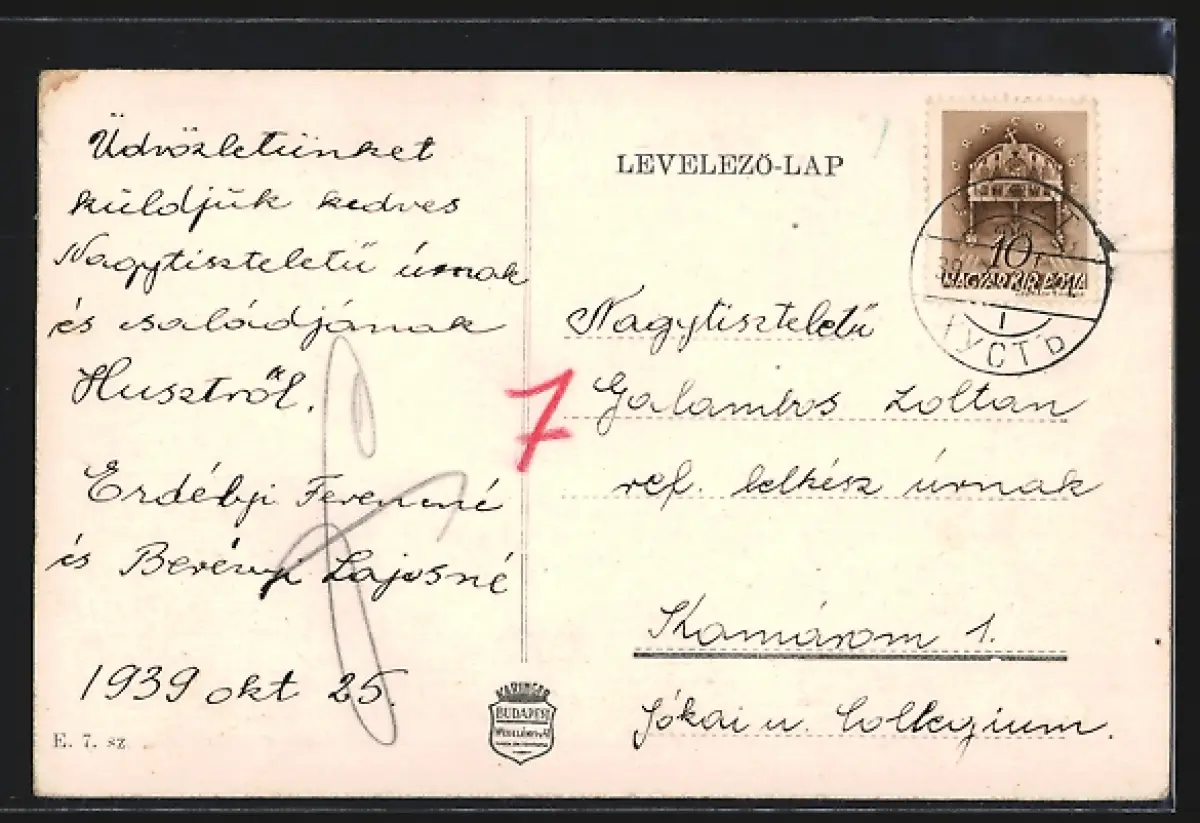 Üdvözletünket
küldjük kedves
Nagytiszteletű úrnak
és családjának
Husztról.
Erdélyi Ferencné
és Berényi Lajosné
1939 okt 25.
E. 7. sz
KARINGER
BUDAPEST
LEVELEZŐ-LAP
10f
MAGYAR KIR. POSTA
ГУСТ
7
Nagytiszteletű
Galambos Zoltán
ref. lelkész úrnak
Komárom 1.
Jókai u. Collegium.